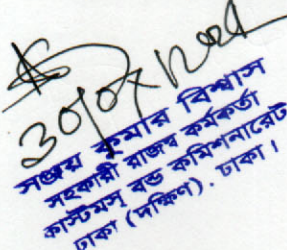 সঞ্জয় কুমার বিশ্বাস
সহকারী রাজস্ব কর্মকর্তা
কাস্টমস্ বন্ড কমিশনারেট
ঢাকা (দক্ষিণ). ঢাকা।